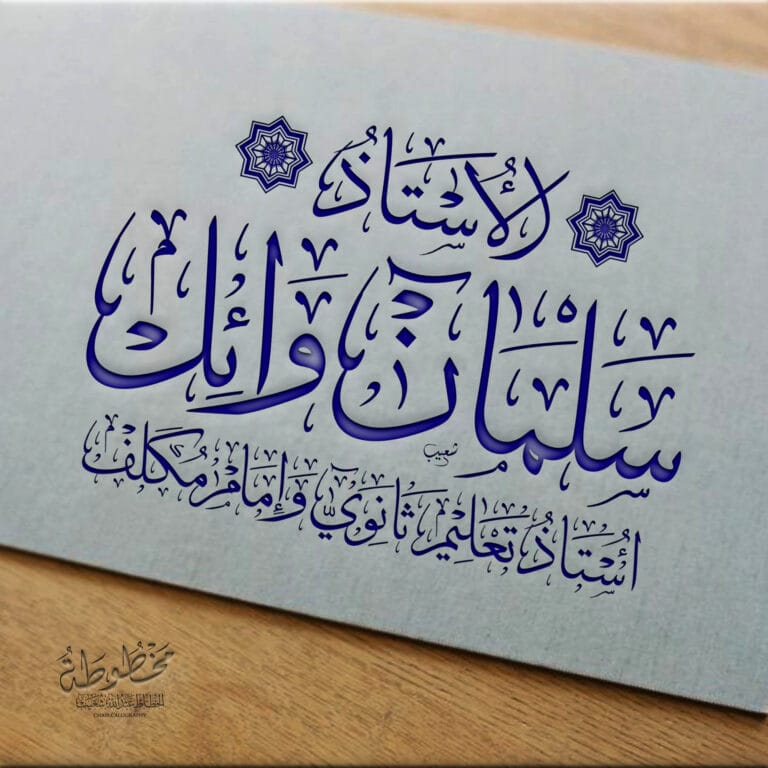 الأُسْتَاذُ
سَلْمَان وَائِل
شعيب
أُسْتَاذُ تَعْلِيمٍ ثَانَوِيٍّ وَإِمَامٌ مُكَلَّفٌ
مخطوطة
الخطاط عبد الله شعيب
CHAIB CALLIGRAPHY